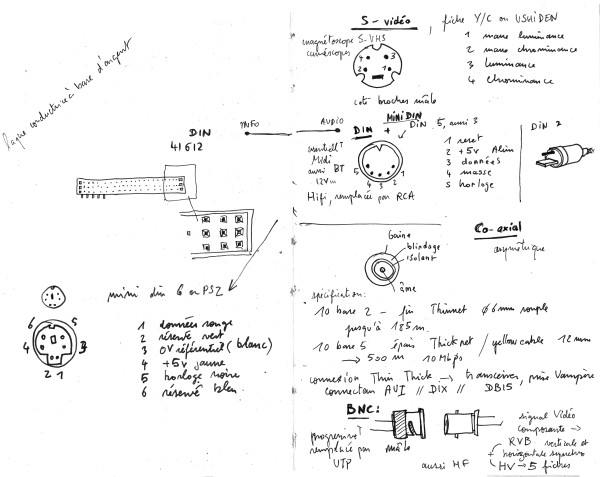 laque conductrice à base d'argent
DIN
41612
INFO
AUDIO
mini din 6 ou PS2
6
5
4
3
2 1
1 données rouge
2 réservé vert
3 0V référentiel (blanc)
4 +5V jaune
5 horloge noire
6 réservé bleu
S-vidéo, fiche Y/C ou USHIDEN
magnétoscope S-VHS
caméscopes
4
3
2
1
1 masse luminance
2 masse chrominance
3 luminance
4 chrominance
côté broches mâle
MINI DIN
DIN + DIN 5, aussi 3
Midi
aussi BT
12V
Hifi, remplacée par RCA
5
4 3 2
1
1 reset
2 +5V Alim
3 données
4 masse
5 horloge
DIN 2
Co-axial
asymétrique
Gaine
blindage
isolant
âme
spécification:
10 base 2 – fin Thinnet ø 6mm souple
jusqu'à 185 m.
10 base 5 épais Thicknet / yellow cable 12 mm
→ 500 m 10 Mbps
connexion Thin Thick → transceiver, prise Vampire
AUI // DIX // DB15
BNC:
remplacé par
UTP
mâle
aussi HF
signal Vidéo
composante →
RVB verticale et
horizontale synchro
HV → 5 fiches